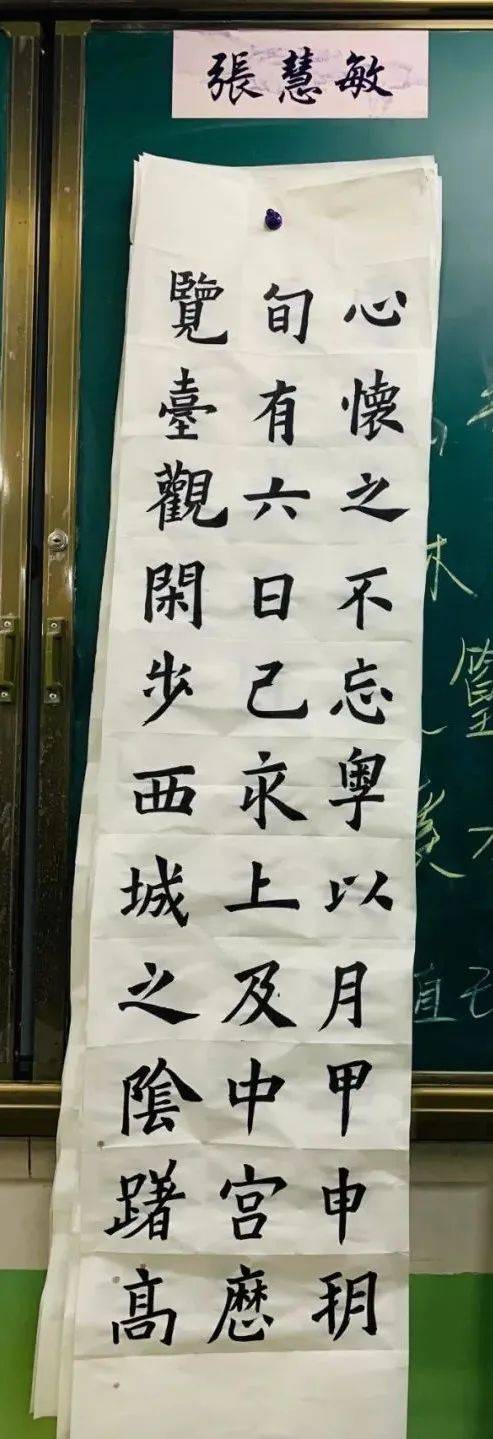 張慧敏
心懷之不忘粵以月甲申玥
旬有六日己亥上及中宮歷
覽臺觀閑步西城之陰躇高